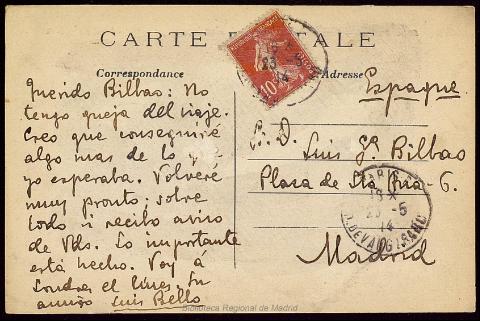 CARTE POSTALE
Correspondance
Adresse
Querido Bilbao: No
tengo queja del viaje.
Creo que conseguiré
algo mas de lo que
yo esperaba. Volveré
muy pronto; sobre
todo si recibo aviso
de Vds. Lo importante
está hecho. Voy á
Londres el lunes. Su
amigo Luis Bello
10
23 -5
14
Espagne
S. D.
Luis Gª Bilbao
Plaza de Sta Ana - 6.
Madrid
PARIS
18
23 -5
14
R. DE VAUGIRARD
Biblioteca Regional de Madrid